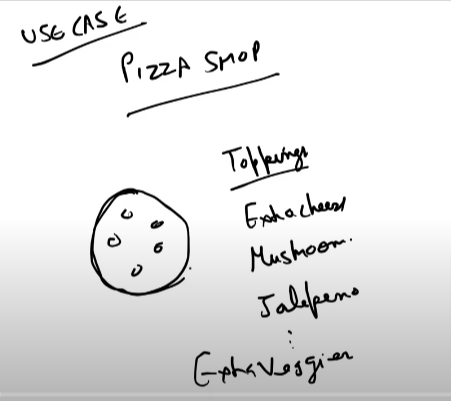 USE CASE
PIZZA SHOP
Toppings
Extra cheese
Mushroom.
Jalepeno
⋮
Extra Veggies